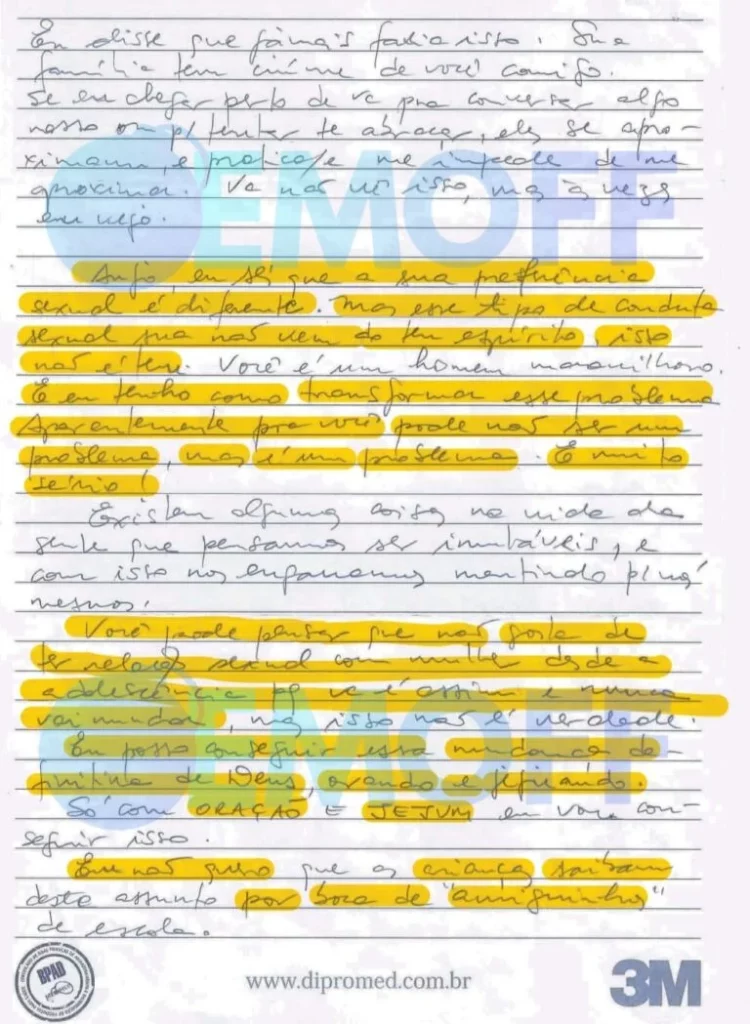 Eu disse que jámais faria isso. Sua
família tem ciúme de você comigo.
Se eu chegar perto de vc pra conversar algo
nosso ou p/ tentar te abraçar, eles se apro-
ximam, e pratica/e me impede de me
aproximar. Vc não vê isso, mas às vezes
eu vejo.
EMOFF
Anjo, eu sei que a sua preferência
sexual é diferente. Mas esse tipo de conduta
sexual sua não vem do teu espírito, isso
não é teu. Você é um homem maravilhoso.
E eu tenho como transformar esse problema
Aparentemente pra você pode não ser um
problema, mas é um problema. É muito
sério!
Existem algumas coisas na vida da
gente que pensamos ser imutáveis, e
com isso nos enganamos mentindo p/ nós
mesmos.
Você pode pensar que não gosta de
ter relação sexual com mulher desde a
adolescência pq vc é assim e nunca
vai mudar, mas isso não é verdade.
EMOFF
Eu posso conseguir essa mudança de-
finitiva de Deus, orando e jejuando.
Só com ORAÇÃO E JEJUM eu vou con-
seguir isso.
Eu não quero que as crianças saibam
deste assunto por boca de "amiguinhos"
de escola.
BPAD
www.dipromed.com.br
3M